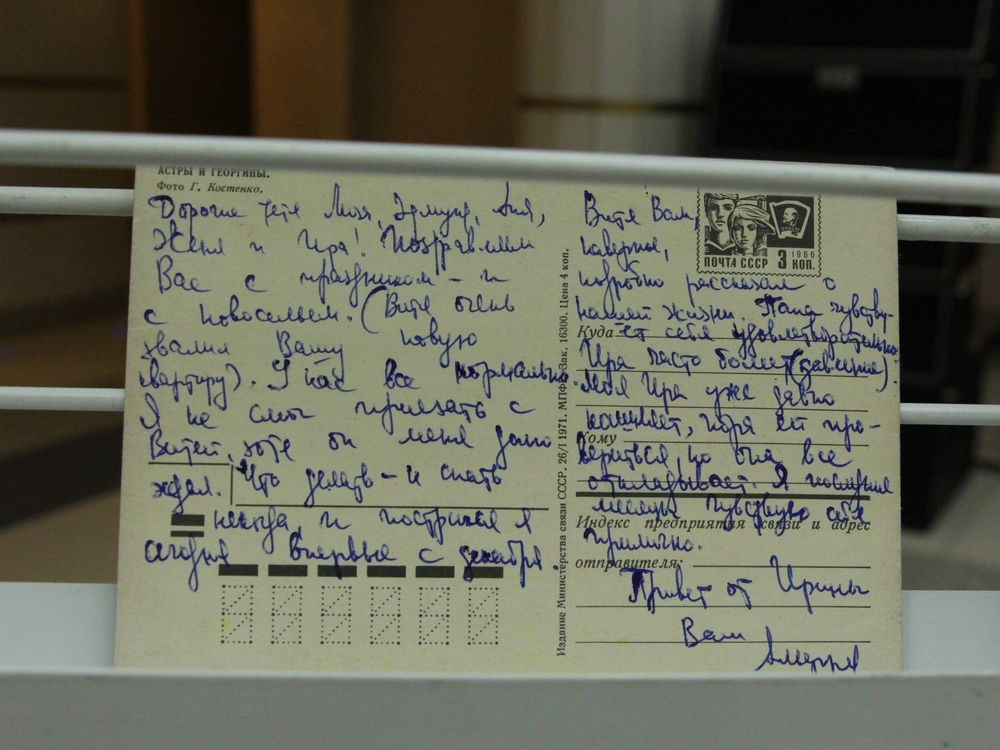 АСТРЫ И ГЕОРГИНЫ.
Фото Г. Костенко.
Дорогие тетя Лиза, Эдмунд, Аня,
Женя и Ира! Поздравляем
Вас с праздником - и
с новосельем. (Вите очень
хвалил Вашу новую
квартиру). У нас все нормально.
Я не смог приехать с
Витей, хотя он меня долго
ждал. Что делать - и спать
некогда, и постригся я
сегодня впервые с декабря.
Издание Министерства связи СССР. 26/I 1971. МПФГ. Зак. 16300. Цена 4 коп.
ПОЧТА СССР 3 КОП. 1966
Витя Вам,
наверное,
подробно рассказал о
нашей жизни. Папа чувству-
Куда
ет себя удовлетворительно.
Ира часто болеет (давление).
Моя Ира уже давно
кашляет, пора ей про-
Кому
вериться, но она все
откладывает. Я последние
месяцы чувствую себя
Индекс предприятия связи и адрес
прилично.
отправителя:
Привет от Ирины
Ваш